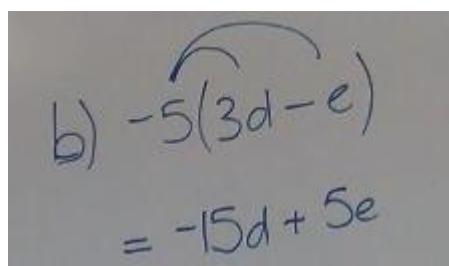 b) -5(3d - e)
= -15d + 5e